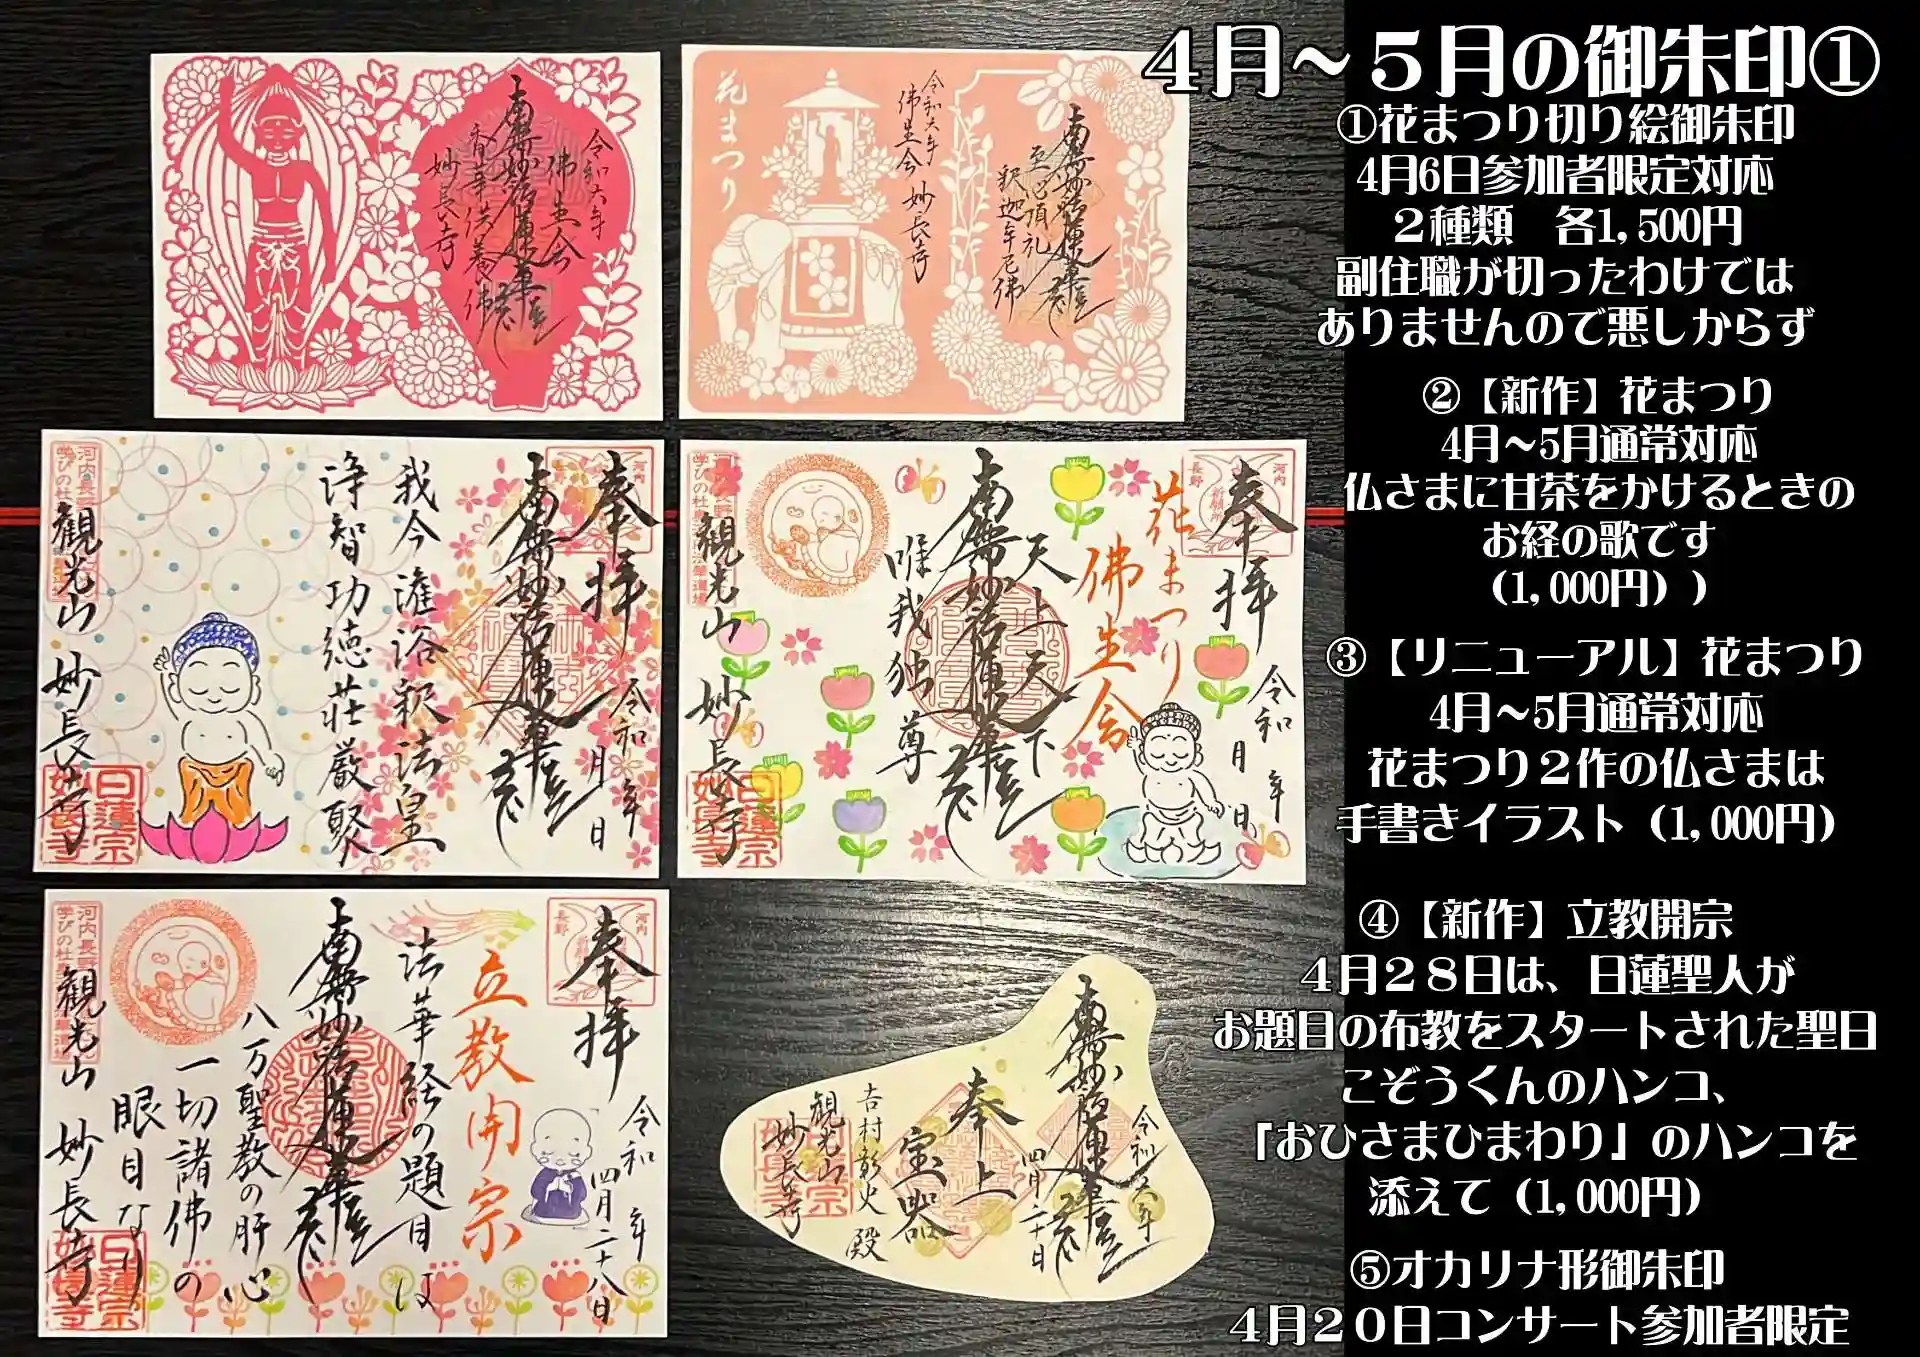 4月～5月の御朱印①
①花まつり切り絵御朱印
4月6日参加者限定対応
２種類　各1,500円
副住職が切ったわけでは
ありませんので悪しからず
②【新作】花まつり
4月～5月通常対応
仏さまに甘茶をかけるときの
お経の歌です
（1,000円））
③【リニューアル】花まつり
4月～5月通常対応
花まつり２作の仏さまは
手書きイラスト（1,000円）
④【新作】立教開宗
４月２８日は、日蓮聖人が
お題目の布教をスタートされた聖日
こぞうくんのハンコ、
「おひさまひまわり」のハンコを
添えて（1,000円）
⑤オカリナ形御朱印
４月２０日コンサート参加者限定
令和六年
佛生会
南無妙法蓮華経
香華供養佛
妙長寺
南無妙法蓮華経
至心頂礼
釈迦牟尼佛
令和六年
佛生会 妙長寺
花まつり
奉拝
河内
長野
令和 年 月 日
南無妙法蓮華経
我今灌浴釈法皇
浄智功徳荘厳聚
観光山 妙長寺
日蓮宗
妙長寺
奉拝
河内
長野
祈願所
令和 年 月 日
花まつり
佛生会
天上天下
南無妙法蓮華経
唯我独尊
観光山 妙長寺
日蓮宗
妙長寺
奉拝
河内
長野
令和 年 四月二十八日
立教開宗
法華経の題目は
南無妙法蓮華経
八万聖教の肝心
一切諸佛の
眼目なり
観光山 妙長寺
日蓮宗
妙長寺
令和六年
四月二十日
南無妙法蓮華経
奉上
宝器
吉村彰火 殿
観光山
妙長寺